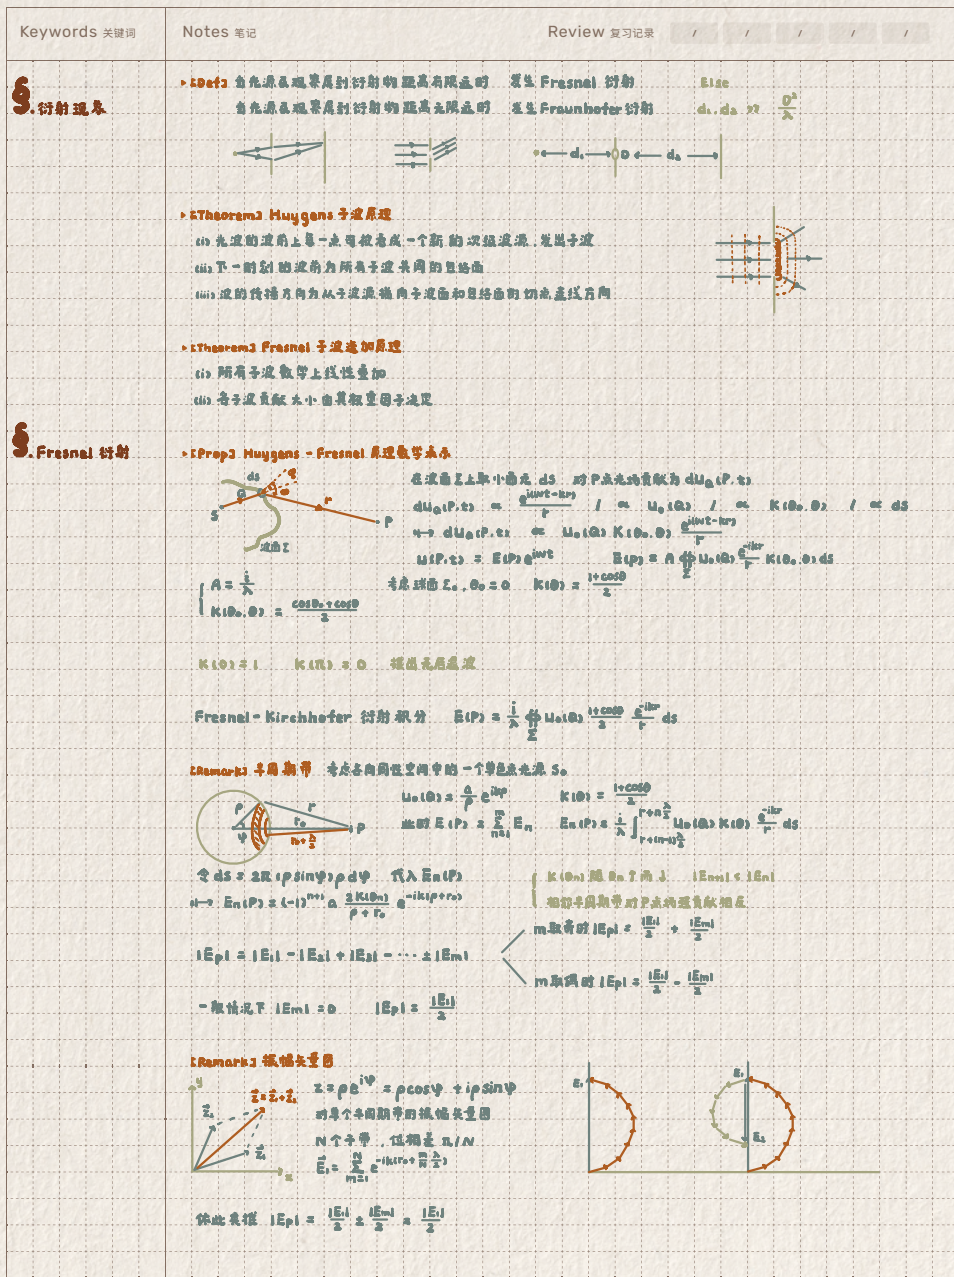 Keywords 关键词 Notes 笔记 Review 复习记录 / / / / /
§.衍射现象
▸[Def] 当光源或观察屏到衍射物距离有限远时 发生 Fresnel 衍射 Else
当光源或观察屏到衍射物距离无限远时 发生 Fraunhofer 衍射 d₁, d₂ >> D²/λ
d₁ D d₂
▸[Theorem] Huygens 子波原理
(i) 光波的波前上每一点可被看成一个新的次级波源,发出子波
(ii) 下一时刻的波前为所有子波共同的包络面
(iii) 波的传播方向为从子波源指向子波面和包络面的切点直线方向
▸[Theorem] Fresnel 子波叠加原理
(i) 所有子波数学上线性叠加
(ii) 各子波贡献大小由其权重因子决定
§.Fresnel 衍射
▸[Prop] Huygens - Fresnel 原理数学表示
ds θ₀ θ Q r S P 波面Σ
在波面Σ上取小面元 ds 对P点光场贡献为 dU_Q(P,t)
dU_Q(P,t) ∝ e^{i(ωt-kr)}/r / ∝ U₀(Q) / ∝ K(θ₀,θ) / ∝ ds
↦ dU_Q(P,t) ∝ U₀(Q) K(θ₀,θ) e^{i(ωt-kr)}/r
U(P,t) = E(P)e^{iωt} E(P) = A ∯_Σ U₀(Q) e^{-ikr}/r K(θ₀,θ) ds
{ A = i/λ 考虑球面Σ₀,θ₀=0 K(θ) = (1+cosθ)/2
K(θ₀,θ) = (cosθ₀+cosθ)/2
K(θ)=1 K(π) = 0 推出无后退波
Fresnel - Kirchhofer 衍射积分 E(P) = i/λ ∯_Σ U₀(Q) (1+cosθ)/2 e^{-ikr}/r ds
[Remark] 半周期带 考虑各向同性空间中的一个单色点光源 S₀
ρ r r₀ P ψ r₀+λ/2
U₀(Q) = a/ρ e^{ikρ} K(θ) = (1+cosθ)/2
此时 E(P) = Σ_{n=1}^{m} E_n E_n(P) = i/λ ∫_{r+(n-1)λ/2}^{r+nλ/2} U₀(Q) K(θ) e^{-ikr}/r ds
令 ds = 2π(ρsinψ)ρdψ 代入 E_n(P) { K(θn) 随 θn↑而↓ |E_{n+1}| < |E_n|
↦ E_n(P) = (-1)^{n+1} a 2K(θn)/(ρ+r₀) e^{-ik(ρ+r₀)} 相邻半周期带对P点物理贡献相反
m取奇时 |Ep| = |E₁|/2 + |Em|/2
|Ep| = |E₁| - |E₂| + |E₃| - ··· ± |Em|
m取偶时 |Ep| = |E₁|/2 - |Em|/2
一般情况下 |Em| = 0 |Ep| = |E₁|/2
[Remark] 振幅矢量图
y z⃗=z⃗₁+z⃗₂ z⃗₂ z⃗₁ x
z = ρe^{iψ} = ρcosψ + iρsinψ
对单个半周期带的振幅矢量图
N个子带,位相差 π/N
E⃗₁ = Σ_{m=1}^{N} e^{-ik(r₀+ m/N λ/2)}
E₁ E₁ E₂
依此类推 |Ep| = |E₁|/2 ± |Em|/2 = |E₁|/2